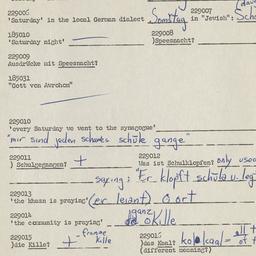 229006 229007
'Saturday' in the local German dialect Somstag in "Jewish":
185010 229008
'Saturday night' )Speesnacht?
229009
Ausdrücke mit Speesnacht?
185031
"Gott von Avrohom"
229010
'every Saturday we went to the synagogue'
"mir sind jeden schabes schüle gange"
229011 229012
) Schulgegangen? + Was ist Schulklopfen? only used
saying: "Er klopft schüla u. leg
229013
'the khazn is praying' (er leiant) o ort
229014
'the community is praying' di ganz okille
229015 229016
)die Kille? + kille )das Kaal? kolokaal =
(different meaning?)